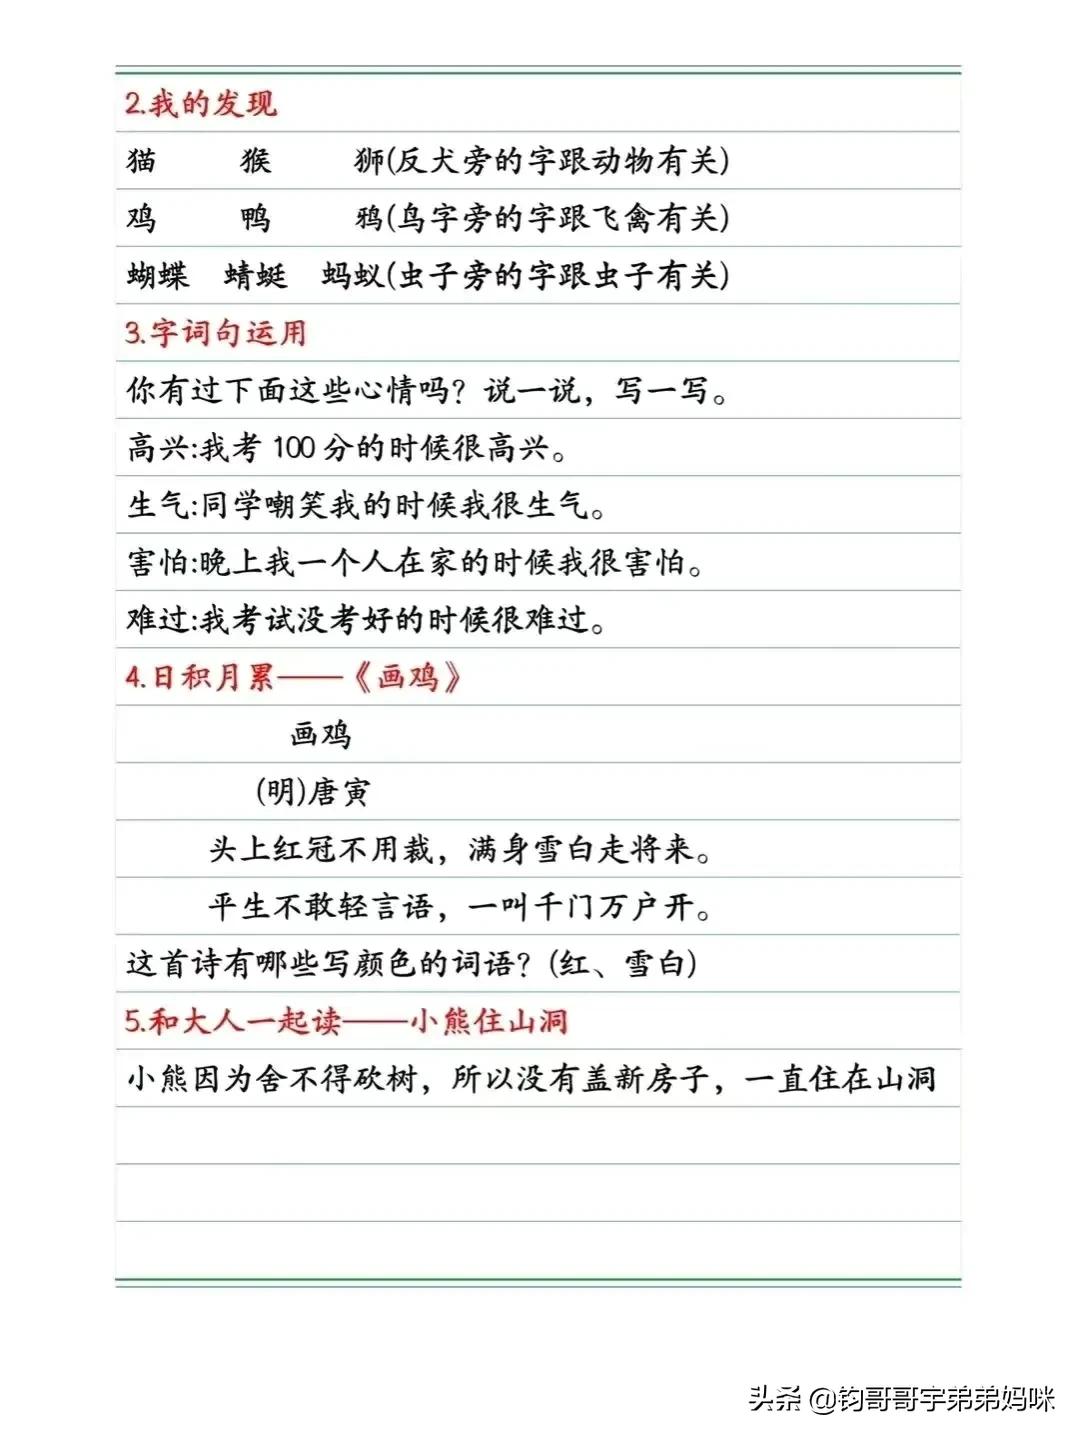 2.我的发现
猫 猴 狮(反犬旁的字跟动物有关)
鸡 鸭 鸦(鸟字旁的字跟飞禽有关)
蝴蝶 蜻蜓 蚂蚁(虫子旁的字跟虫子有关)
3.字词句运用
你有过下面这些心情吗？说一说，写一写。
高兴:我考100分的时候很高兴。
生气:同学嘲笑我的时候我很生气。
害怕:晚上我一个人在家的时候我很害怕。
难过:我考试没考好的时候很难过。
4.日积月累——《画鸡》
画鸡
(明)唐寅
头上红冠不用裁，满身雪白走将来。
平生不敢轻言语，一叫千门万户开。
这首诗有哪些写颜色的词语？(红、雪白)
5.和大人一起读——小熊住山洞
小熊因为舍不得砍树，所以没有盖新房子，一直住在山洞
头条 @钧哥哥宇弟弟妈咪